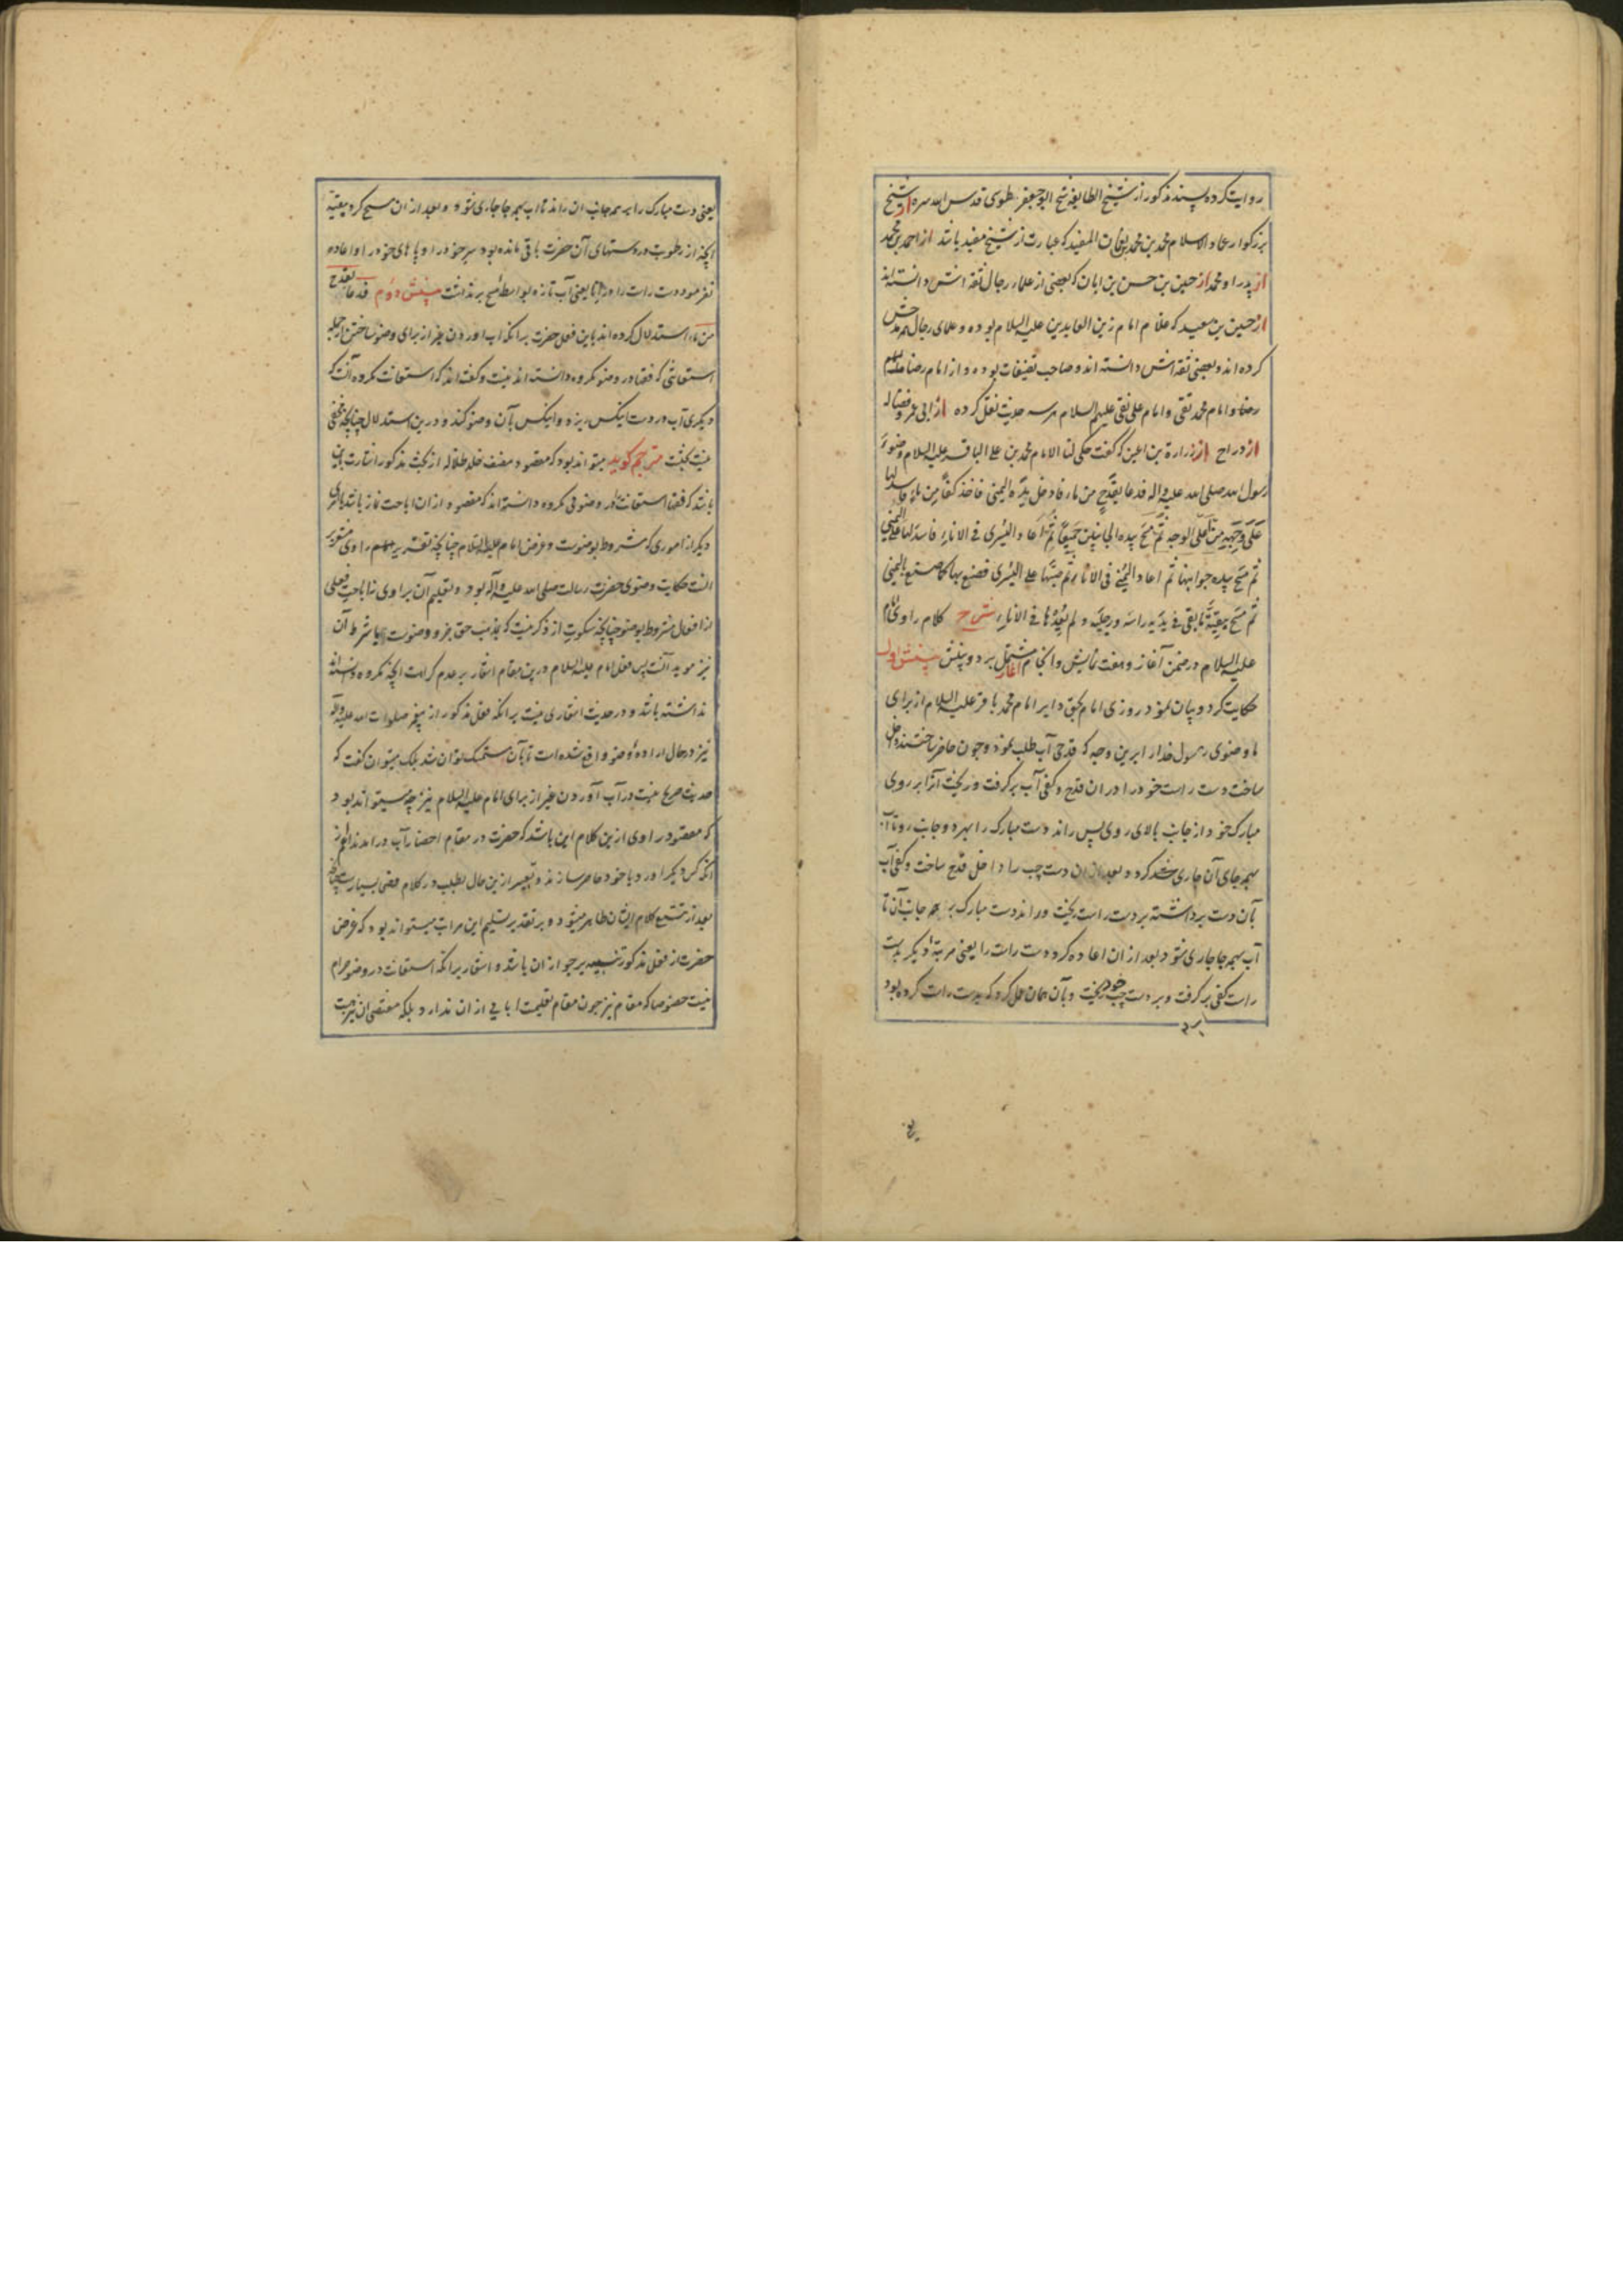 روایت کرده بسند مذکور از شیخ الطایفه شیخ ابوجعفر طوسی قدس الله سره از شیخ
بزرگوار عماد الاسلام محمد بن محمد بن نعمان المفید که عبارت از شیخ مفید باشد از احمد بن محمد
از پدر او محمد از حسین بن حسن بن ابان که بعضی از علماء رجال ثقه اش دانسته اند
از حسین بن سعید که غلام امام زین العابدین علیه السلام بوده و علمای رجال مدحش
کرده اند و بعضی ثقه اش دانسته اند و صاحب تصنیفات بوده و از امام رضا علیهم
رضا و امام محمد تقی و امام علی نقی علیهم السلام هر سه حدیث نقل کرده از ابی عمر و فضاله
از دراج از زرارة بن اعین که گفت حکی لنا الامام محمد بن علی الباقر علیه السلام وضوء
رسول الله صلی الله علیه واله فدعا بقدح من ماء فادخل یده الیمنی فاخذ کفا من ماء فاسدلها
علی وجهه من اعلی الوجه ثم مسح بیده الجانبین جمیعا ثم اعاد الیسری فی الاناء فاسدلها علی الیمنی
ثم مسح بیده جوانبها ثم اعاد الیمنی فی الاناء ثم صبها علی الیسری فصنع بها کما صنع بالیمنی
ثم مسح ببقیة ما بقی فی یدیه راسه ورجلیه ولم یعدها فی الاناء شرح کلام راوی امام
علیه السلام در ضمن آغاز و هفت نمایش و انجام مشتمل بر دو پینش پینش اول
حکایت کرد و بیان نمود روزی امام بحق دایر امام محمد باقر علیه السلام از برای
ما وضوی رسول خدا را برین وجه که قدحی آب طلب نمود و چون حاضر ساختند داخل
ساخت دست راست خود را در ان قدح و کفی آب برگرفت و ریخت آنرا بر روی
مبارک خود از جانب بالای روی پس راند دست مبارک را بهر دو جانب رو تا آب
بهمه جای آن جاری شد کرد و بعد از ان دست چب را داخل قدح ساخت و کفی آب
بآن دست برداشته بر دست راست ریخت و راند دست مبارک بر همه جانب آن تا
آب بهمه جا جاری شود بعد از ان اعاده کرد دست راست را یعنی مرتبهٔ دیکر بدست
راست کفی برگرفت و بر دست چب خود ریخت و بآن همان عمل کرد که بدست راست کرده بود
یعنی دست مبارک را بر همه جانب ان راند تا اب بهمه جا جاری شود و بعد از ان مسح کرد ببقیه
آنچه از رطوبت در دستهای آن حضرت باقی مانده بود سر خود را و پا های خود را و اعاده
نفرمود دست راست را در انا یعنی آب تازه بواسطهٔ مسح برنداشت پینش دوم فدعا بقدح
من ماء استدلال کرده اند باین فعل حضرت برانکه اب اوردن غیر از برای وضو ساختن از جمله
استعانتی که فقها در وضو مکروه دانسته اند نیست و گفته اند که استعانت مکروه آنست که
دیکری آب در دست اینکس ریزد و اینکس بآن وضو کند و درین استدلال چنانچه مخفی
نیست بحث مترجم کوید میتواند بود که مقصود مصنف خلد ظلاله از بحث مذکور اشارت باین
باشد که فقها استعانت را در وضوئی مکروه دانسته اند که مقصود از ان اباحت نماز باشد یا امری
دیکر از اموری که مشروط بوضوست و غرض امام علیه السلام چنانچه تقریر راوی مشعر بر
انست حکایت وضوی حضرت رسالت صلی الله علیه وآله بود و تعلیم آن براوی نه اباحت فعلی
از افعال مشروط بوضو چنانچه سکوت از ذکر نیت که بمذهب حق جزو وضوست یا شرط آن
نیز موید آنست پس فعل امام علیه السلام درین مقام اشعار بر عدم کراهت آنچه مکروه دانسته اند
نداشته باشد و در حدیث اشعاری نیست برانکه فعل مذکور از پیغمبر صلوات الله علیه وآله
نیز در حال ارادهٔ وضو واقع شده است تا بآن متمسک توان شد بلکه میتوان گفت که
حدیث صریح نیست در آب آوردن غیر از برای امام علیه السلام نیز چه میتواند بود
که مقصود راوی ازین کلام این باشد که حضرت در مقام احضار آب درامدند اعم از
انکه کس دیکر اورد یا خود حاضر سازند و تعبیر ازین حال بطلب در کلام فصحی بسیارست چنانچه
بعد از تتبع کلام ایشان ظاهر میشود و بر تقدیر تسلیم این مراتب میتواند بود که غرض
حضرت از فعل مذکور تنبیه بر جواز ان باشد و اشعار برانکه استعانت در وضو حرام
نیست خصوصا که مقام نیز چون مقام تعلیمست ابایی از ان ندارد بلکه مقتضی ان نیز هست